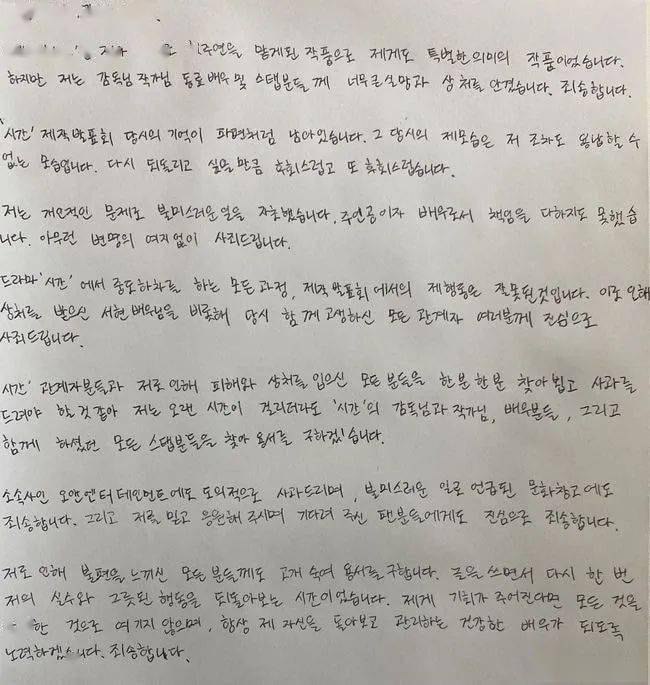 주연을 맡게된 작품으로 제게도 특별한 의미의 작품이었습니다.
하지만 저는 감독님 작가님 동료배우 및 스탭분들께 너무큰실망과 상처를 안겼습니다. 죄송합니다.
'시간' 제작발표회 당시의 기억이 파편처럼 남아있습니다. 그 당시의 제모습은 저 조차도 용납할 수
없는 모습입니다. 다시 되돌리고 싶을만큼 후회스럽고 또 후회스럽습니다.
저는 개인적인 문제로 불미스러운일을 자초했습니다. 주연공이자 배우로서 책임을 다하지도 못했습
니다. 아무런 변명의 여지없이 사죄드립니다.
드라마'시간' 에서 중도하차를 하는 모든과정, 제작발표회에서의 제행동은 잘못된것입니다. 이로인해
상처를 받으신 서현배우님을 비롯해 당시 함께고생하신 모든관계자 여러분께 진심으로
사죄드립니다.
시간' 관계자분들과 저로인해 피해와 상처를 입으신 모든분들을 한분한분 찾아뵙고 사과를
드려야 할것같아 저는 오랜 시간이 걸리더라도 '시간'의 감독님과작가님, 배우분들, 그리고
함께 하셨던 모든 스탭분들을 찾아 용서를 구하겠습니다.
소속사인 오앤엔터테인먼트에도 도의적으로 사과드리며, 불미스러운 일로 언급된 문화창고에도
죄송합니다. 그리고 저를 믿고 응원해 주시며 기다려 주신 팬분들에게도 진심으로 죄송합니다.
저로 인해 불편을 느끼신 모든 분들께도 고개 숙여 용서를구합니다. 글을 쓰면서 다시 한 번
저의 실수와 그릇된 행동을 되돌아보는 시간이었습니다. 제게 기회가 주어진다면 모든 것을
한 것으로 여기지 않으며, 항상 제 자신을 돌아보고 관리하는 건강한 배우가 되도록
노력하겠습니다. 죄송합니다.